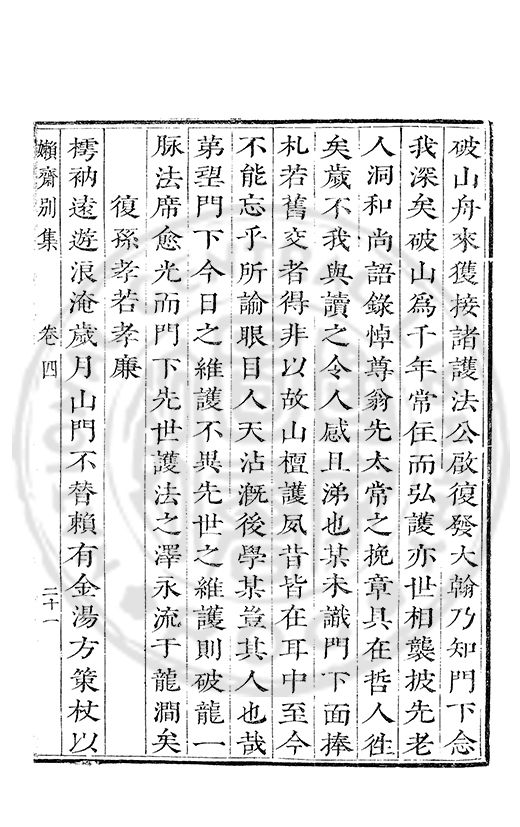 破山舟來獲接諸護法公啟復發大翰乃知門下念
我深矣破山為千年常住而弘護亦世相襲披先老
人洞和尚語錄悼尊翁先太常之挽章具在哲人徃
矣歲不我與讀之令人感且涕也某未識門下面捧
札若舊交者得非以故山檀護夙昔皆在耳中至今
不能忘乎所諭眼目人天沾溉後學某豈其人也哉
第望門下今日之維護不異先世之維護則破龍一
脉法席愈光而門下先世護法之澤永流于龍澗矣
復孫孝若孝廉
樗衲遠遊浪淹歲月山門不替賴有金湯方策杖以
嬾齋別集 卷四 二十一